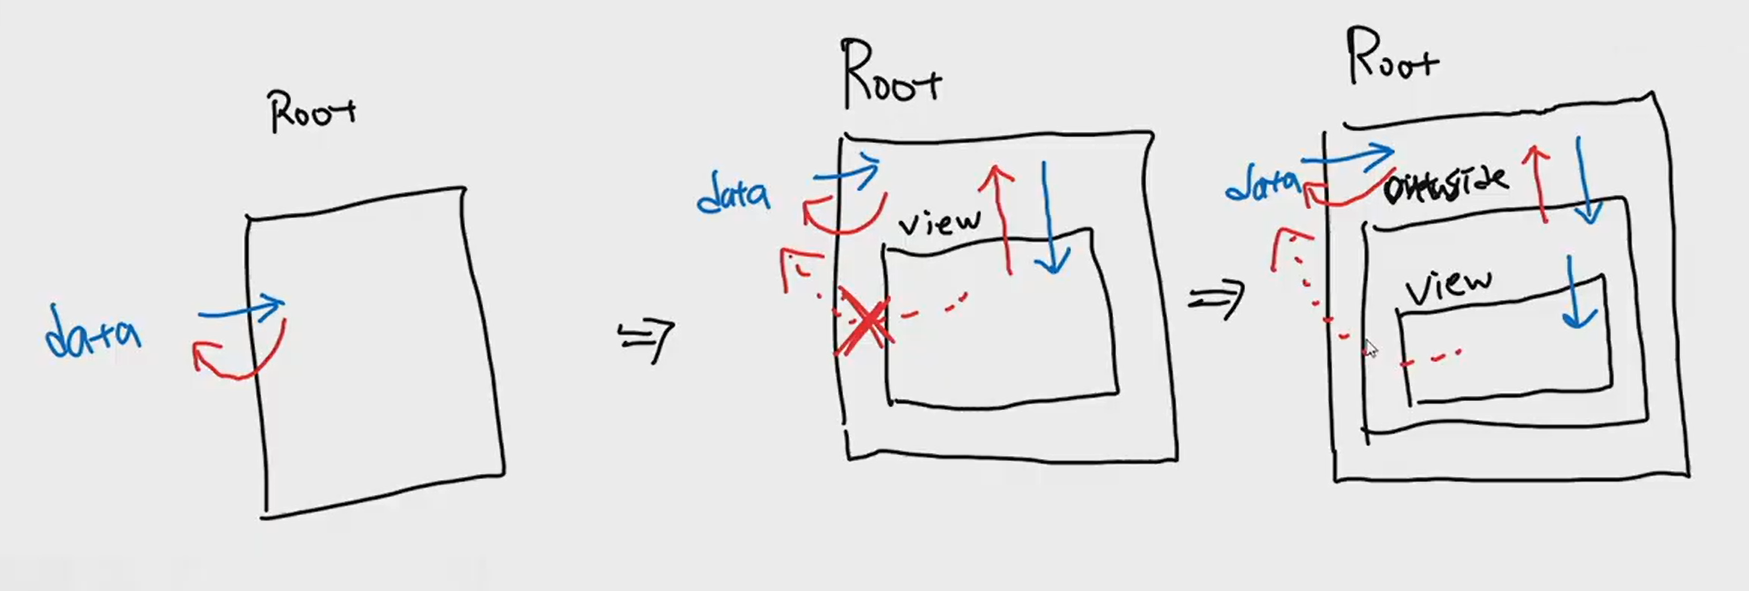 Root
data
Root
data
view
Root
data
view